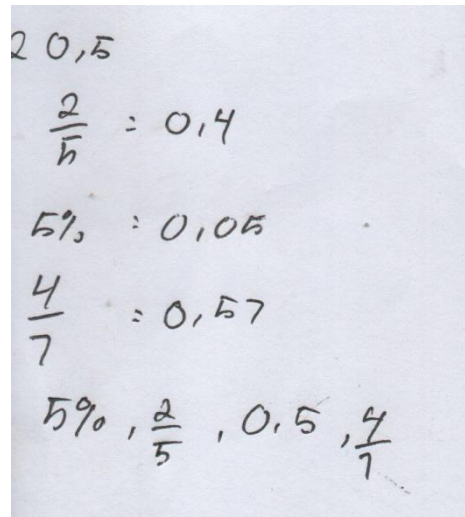 2 0,5
2/5 = 0,4
5% = 0,05
4/7 = 0,57
5%, 2/5, 0,5, 4/7